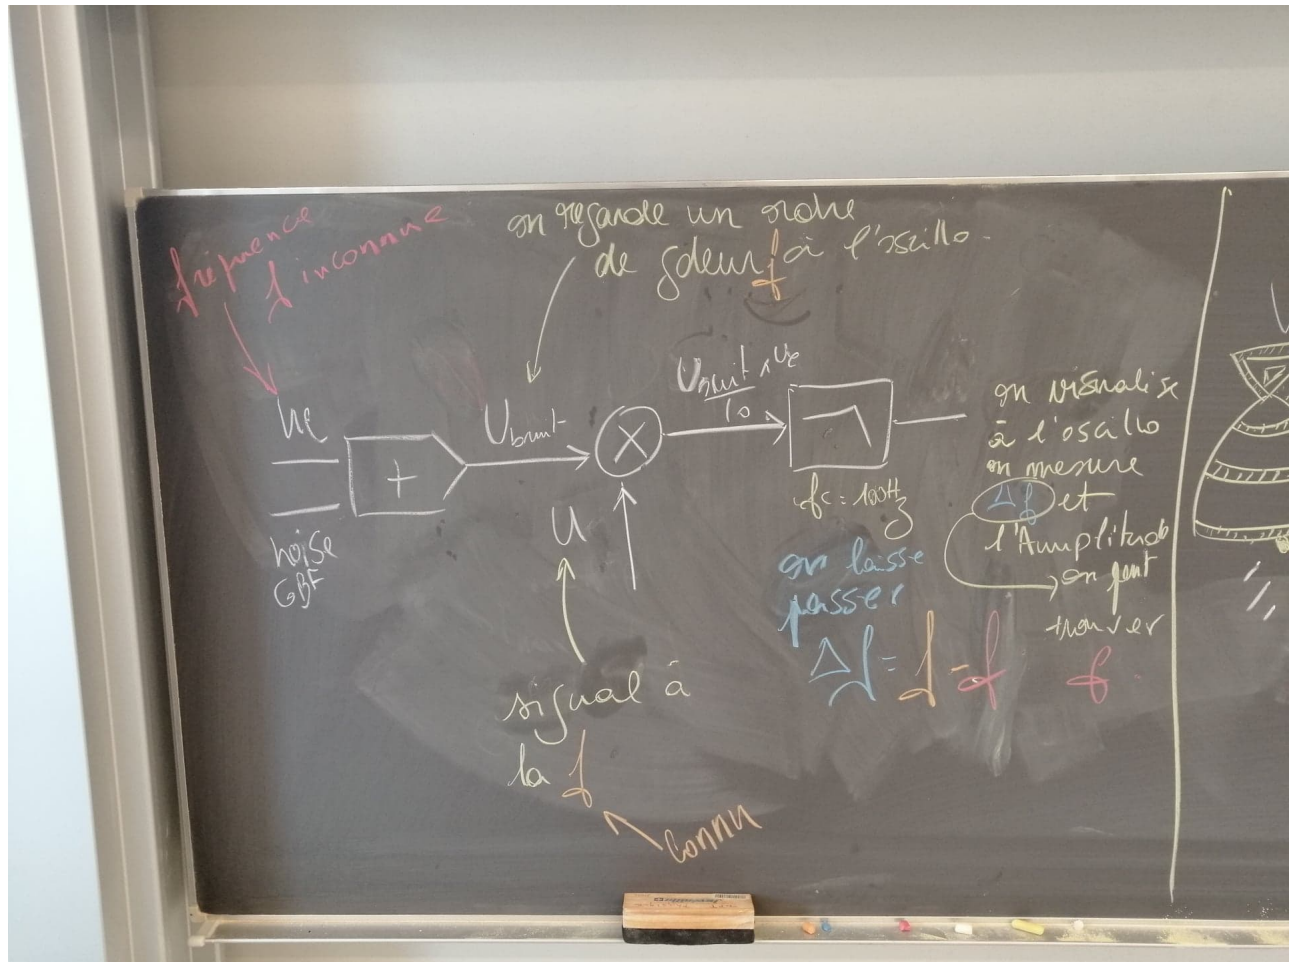 fréquence
f inconnue
on regarde un ordre
de gdeur f à l'oscillo.
ue
noise
GBF
+
Ubruit
×
U
Ubruit × ue
10
fc = 100Hz
on laisse
passer
Δf = f - f
on visualise
à l'oscillo
on mesure
Δf et
l'Amplitude
on peut
trouver
f
signal à
la f
connu